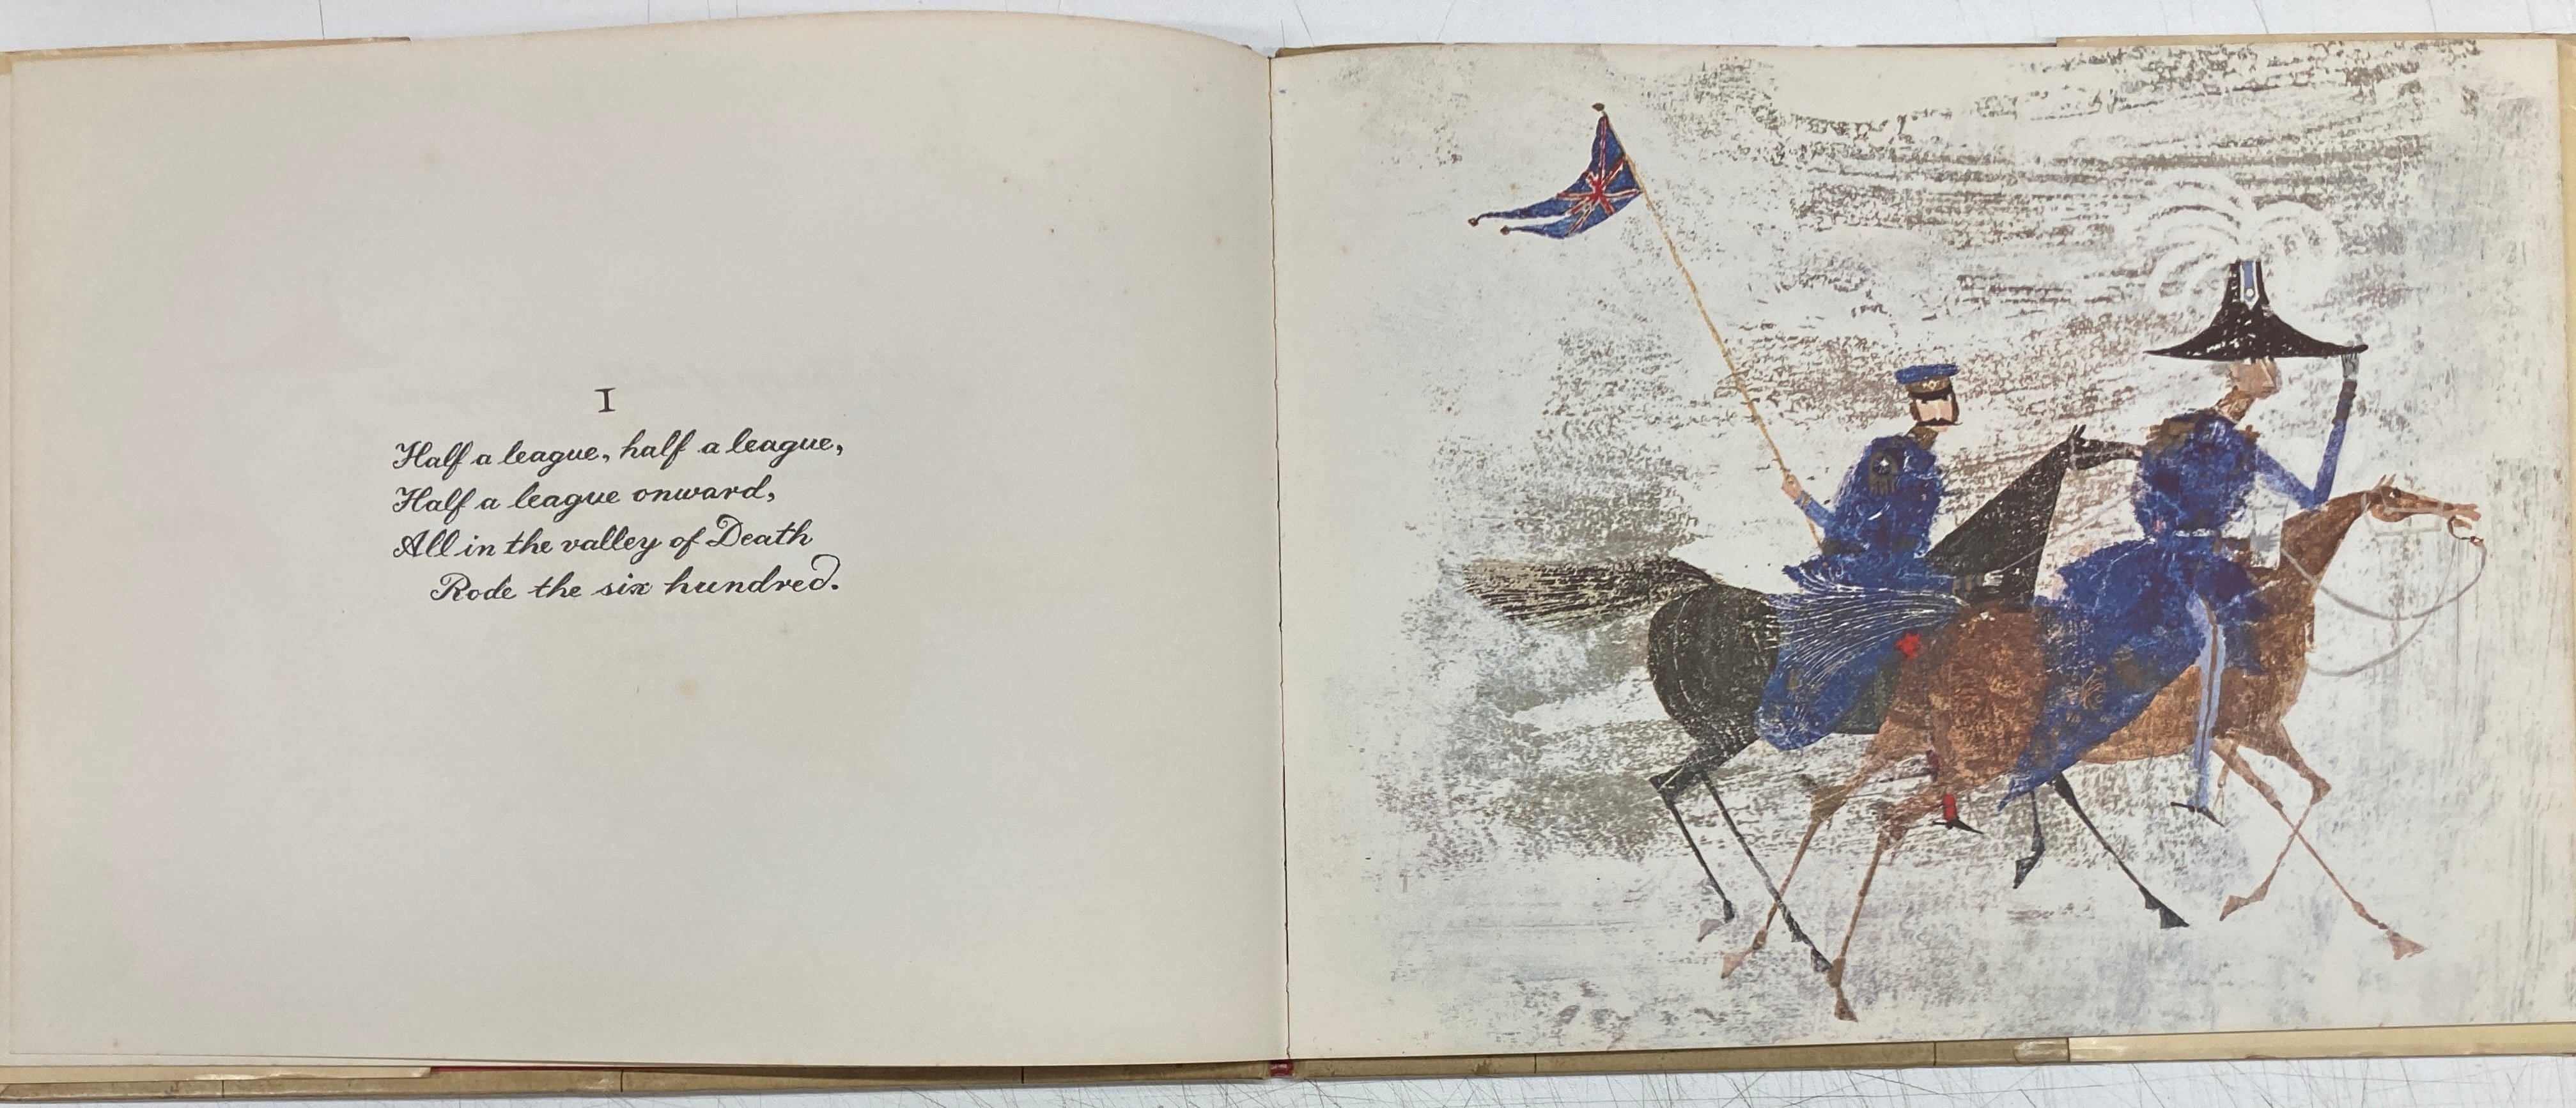 I
Half a league, half a league,
Half a league onward,
All in the valley of Death
Rode the six hundred.